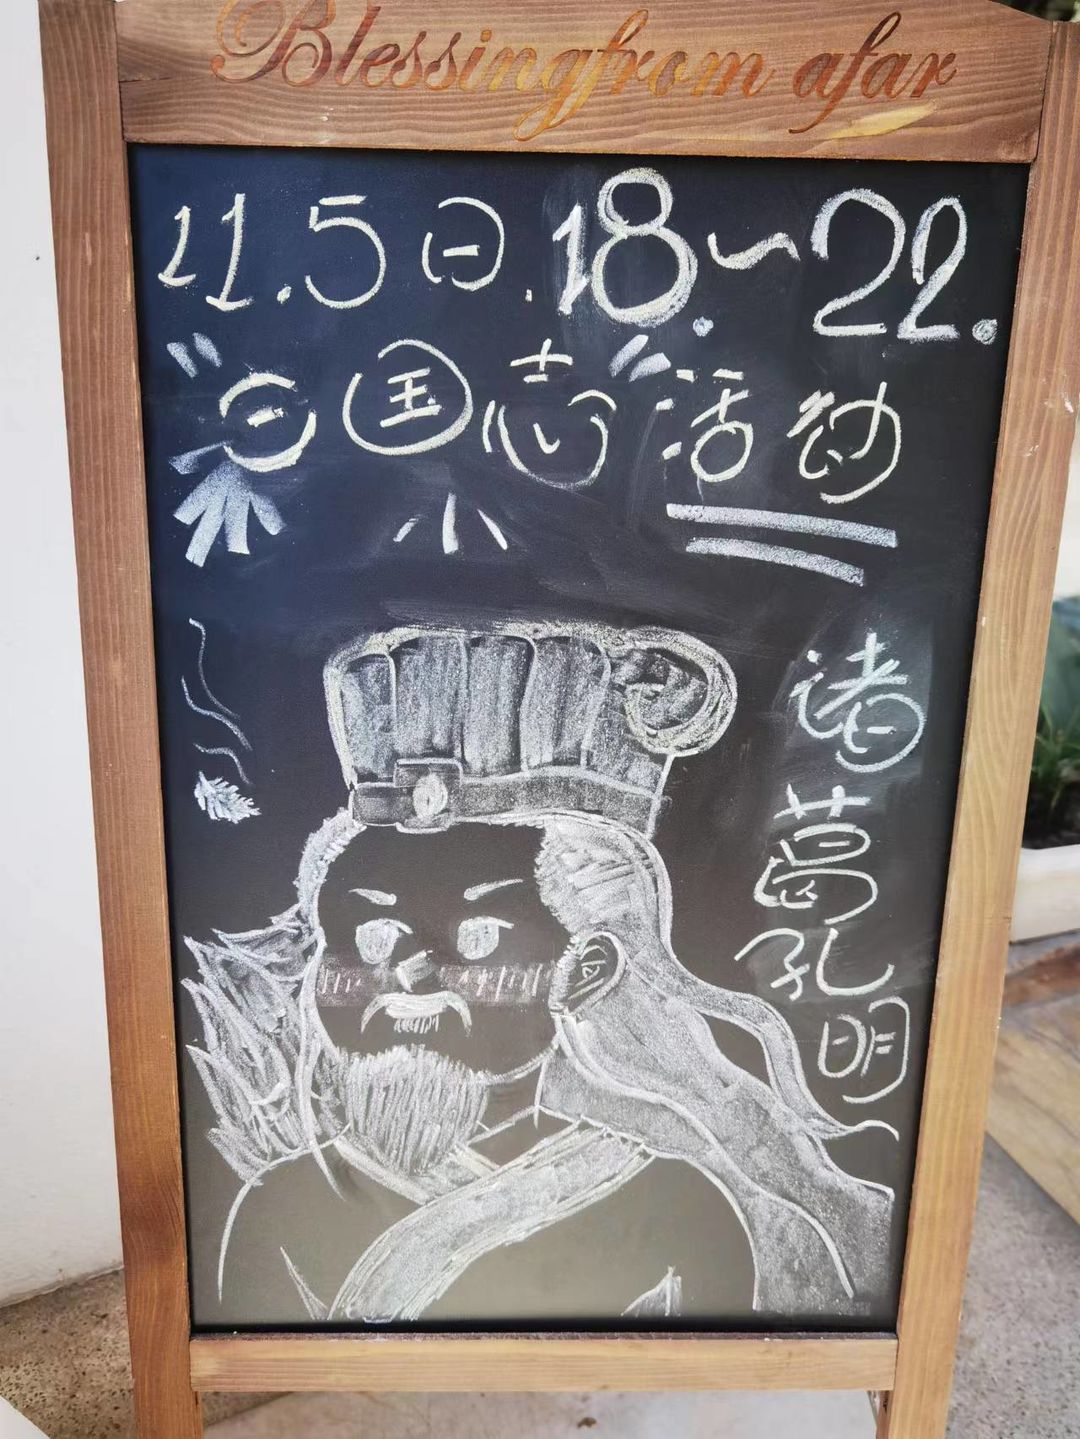 Blessingfrom afar
11.5日.18.~22.
"三国志"活动
诸葛孔明